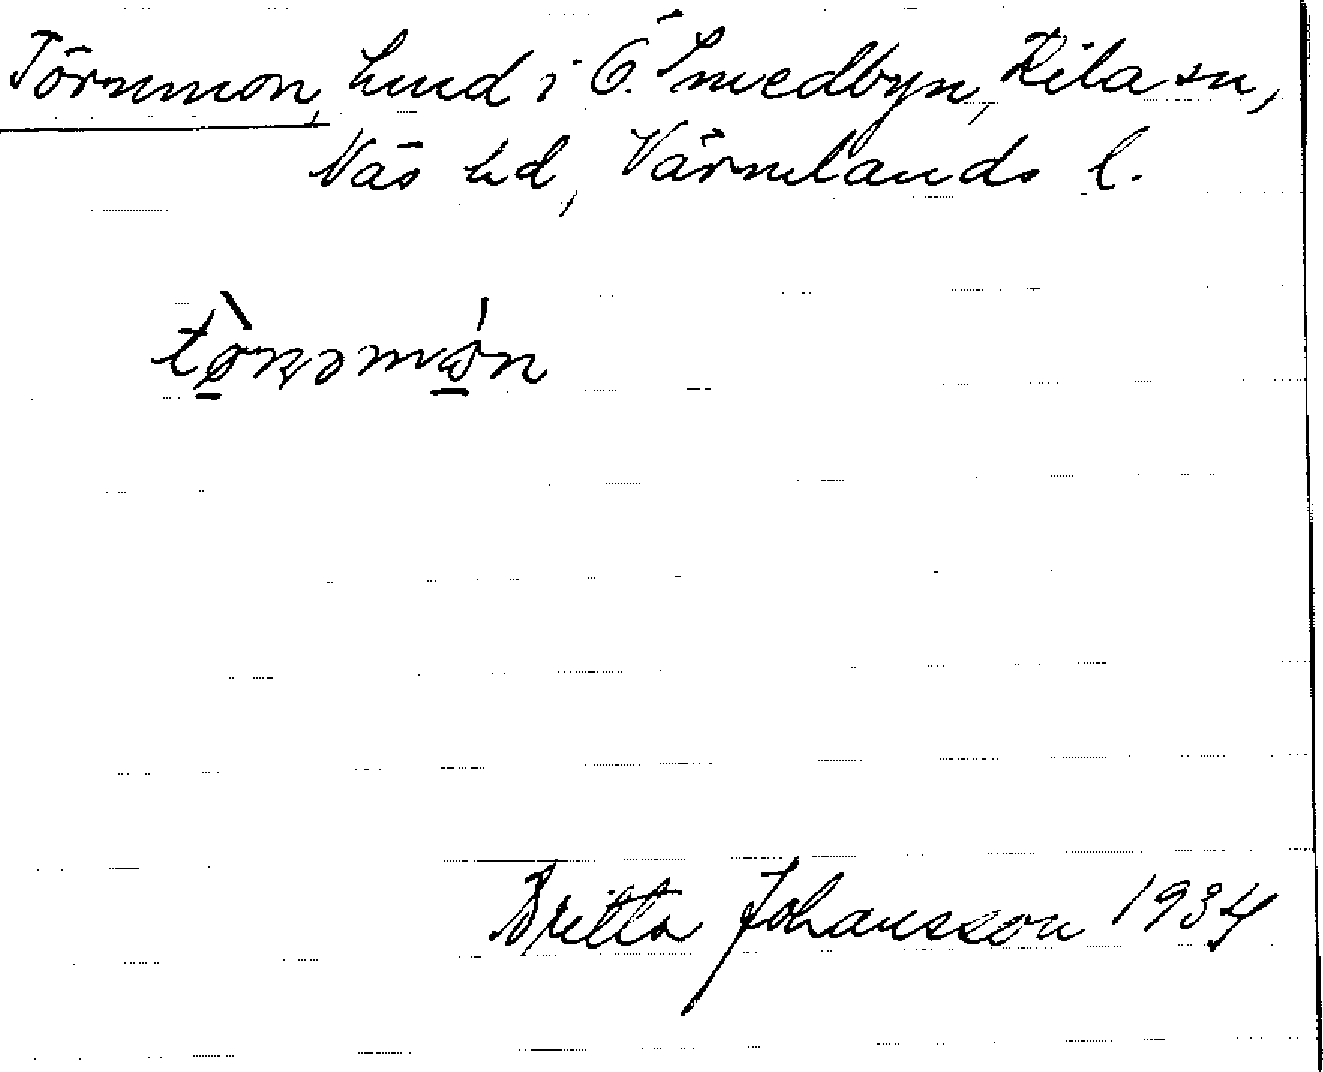 Törnmon, lund i Ö. Smedbyn, Kila sn,
Näs hd, Värmlands l.
Britta Johansson 1934